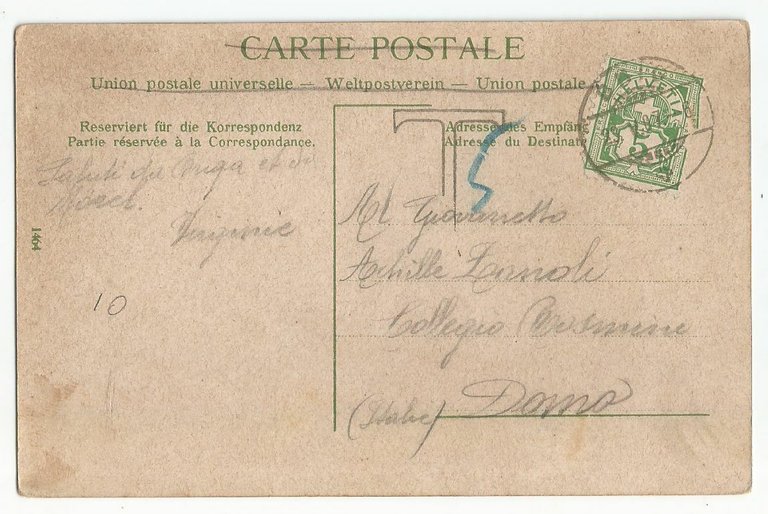 CARTE POSTALE
Union postale universelle — Weltpostverein — Union postale
Reserviert für die Korrespondenz
Partie réservée à la Correspondance.
Adresse des Empfäng
Adresse du Destinat
HELVETIA
5
T
5
Saluti
Virginie
1464
10
Al Giovinetto
Achille Zanoli
Collegio Rosmini
Domo
(Italie)